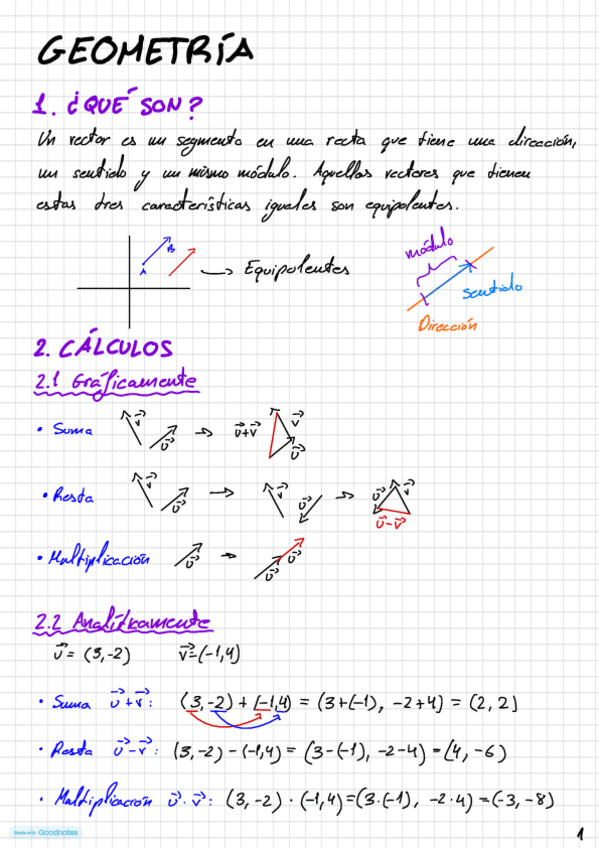 GEOMETRÍA
1. ¿QUÉ SON?
Un vector es un segmento en una recta que tiene una dirección,
un sentido y un mismo módulo. Aquellos vectores que tienen
estas tres características iguales son equipolentes.
A B → Equipolentes
módulo
sentido
Dirección
2. CÁLCULOS
2.1 Gráficamente
• Suma v⃗ u⃗ → u⃗+v⃗ v⃗ u⃗
• Resta v⃗ u⃗ → v⃗ u⃗ → u⃗ v⃗
u⃗-v⃗
• Multiplicación u⃗ → u⃗ u⃗
2.2 Analíticamente
u⃗ = (3,-2) v⃗=(-1,4)
• Suma u⃗+v⃗: (3,-2) + (-1,4) = (3+(-1), -2+4) = (2,2)
• Resta u⃗-v⃗: (3,-2)-(-1,4) = (3-(-1), -2-4) = (4,-6)
• Multiplicación u⃗·v⃗: (3,-2)·(-1,4)=(3·(-1), -2·4)=(-3,-8)
Made with Goodnotes
1